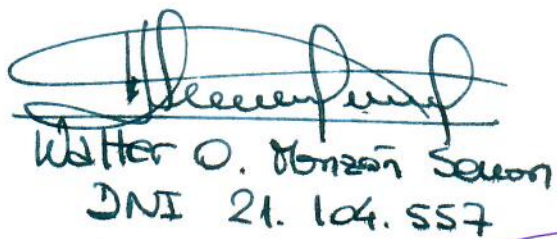 Walter O. Monzón
DNI 21.104.557